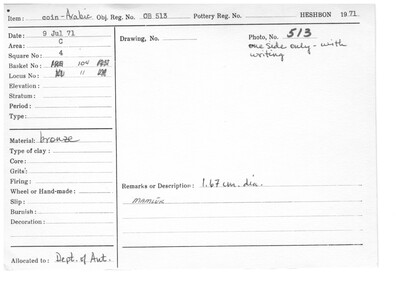 Item: coin-Arabic Obj. Reg. No. OB 513 Pottery Reg. No. HESHBON 1971
Date: 9 Jul 71
Area: C
Square No: 4
Basket No: 104
Locus No: 11
Elevation:
Stratum:
Period:
Type:
Material: bronze
Type of clay:
Core:
Grits:
Firing:
Wheel or Hand-made:
Slip:
Burnish:
Decoration:
Allocated to: Dept. of Ant.
Drawing, No.
Photo, No. 513
one side only - with
writing
Remarks or Description: 1.67 cm. dia.